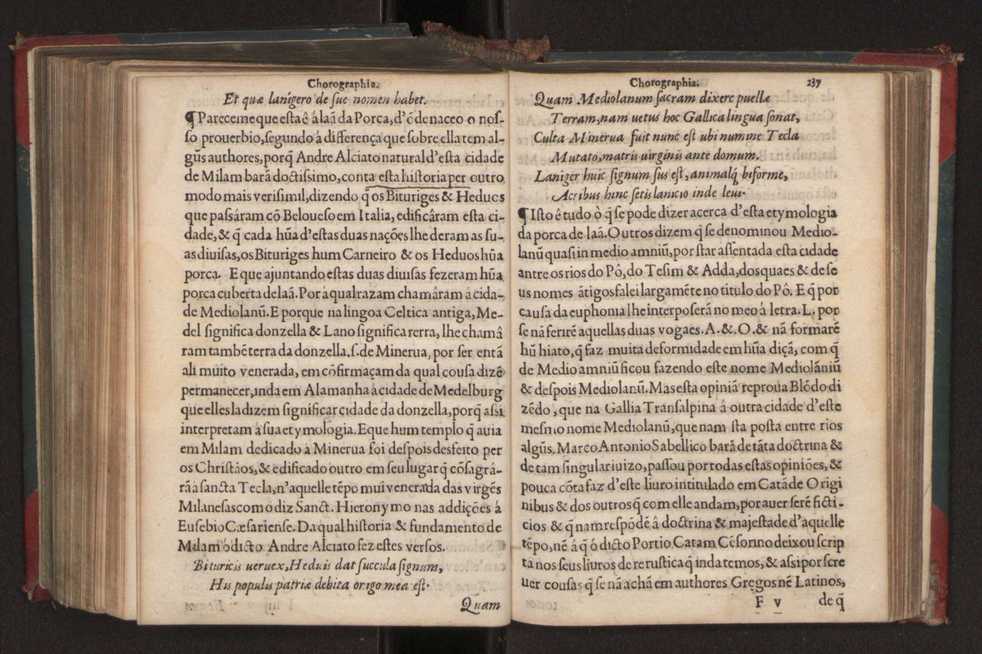 Chorographia.
Et quæ lanigero de sue nomen habet.
¶ Pareceme que esta ê â laã da Porca, d'õ de naceo o nos-
so prouerbio, segundo â differença que sobre ella tem al-
gũs authores, porq̃ Andre Alciato natural d'esta cidade
de Milam barã doctissimo, conta esta historia per outro
modo mais verisimil, dizendo q̃ os Bituriges & Heduos
que passâram cõ Beloueso em Italia, edificâram esta ci-
dade, & q̃ cada hũa d'estas duas nações lhe deram as su-
as diuisas, os Bituriges hum Carneiro & os Heduos hũa
porca. E que ajuntando estas duas diuisas fezeram hũa
porca cuberta de laã. Por â qual razam chamâram â cida-
de Mediolanũ. E porque na lingoa Celtica antiga, Me-
del significa donzella & Lano significa terra, lhe chamâ
ram tambẽ terra da donzella. s. de Minerua, por ser entã
ali muito venerada, em cõfirmaçam da qual cousa dizẽ
permanecer, inda em Alamanha â cidade de Medelburg
que elles la dizem significar cidade da donzella, porq̃ assi
interpretam â sua etymologia. E que hum templo q̃ auia
em Milam dedicado â Minerua foi despois desfeito per
os Christãos, & edificado outro em seu lugar q̃ cõsagrâ-
rã â sancta Tecla, n'aquelle tẽpo mui venerada das virgẽs
Milanesas como diz Sanct. Hieronymo nas addições â
Eusebio Cæsariense. Da qual historia & fundamento de
Milam ò dicto Andre Alciato fez estes versos.
Bituricis veruex, Heduis dat succula signum,
His populis patriæ debita origo mea est.
Quam
Chorographia. 237
Quam Mediolanum sacram dixere puellæ
Terram, nam uetus hoc Gallica lingua sonat,
Culta Minerua fuit nunc est ubi numine Tecla
Mutato, matris uirginis ante domum.
Laniger huic signum sus est, animalq́ biforme,
Acribus hinc setis lanicio inde leui.
¶ Isto é tudo ò q̃ se pode dizer acerca d'esta etymologia
da porca de laã. Outros dizem q̃ se denominou Medio-
lanũ quasi in medio amniũ, por star assentada esta cidade
antre os rios do Pô, do Tesim & Adda, dos quaes & de se
us nomes ãtigos falei largamẽte no titulo do Pô. E q̃ por
causa da euphonia lhe interposerã no meo â letra. L. por
se nã ferirẽ aquellas duas vogaes. A. & O. & nã formarẽ
hũ hiato, q̃ faz muita deformidade em hũa diçã, com q̃
de Medio amniũ ficou fazendo este nome Mediolãniũ
& despois Mediolanũ. Mas esta opiniã reproua Blõdo di
zẽdo, que na Gallia Transalpina â outra cidade d'este
mesmo nome Mediolanũ, que nam sta posta entre rios
algũs. Marco Antonio Sabellico barã de tãta doctrina &
de tam singular iuizo, passou por todas estas opiniões, &
pouca cõta faz d'este liuro intitulado em Catã de Origi
nibus & dos outros q̃ com elle andam, por auer serẽ ficti-
cios & q̃ nam respõdẽ â doctrina & majestade d'aquelle
tẽpo, nẽ â q̃ ò dicto Portio Catam Cẽsorino deixou scrip
ta nos seus liuros de re rustica q̃ inda temos, & assi por scre
uer cousas q̃ se nã achã em authores Gregos nẽ Latinos,
F v de q̃